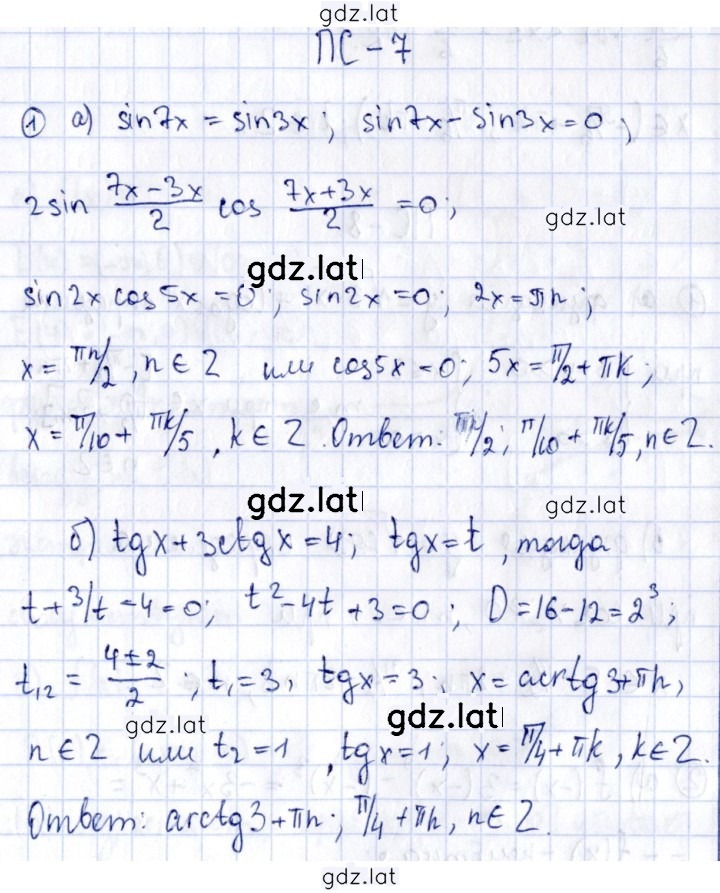 gdz.lat
ПС - 7
① а) sin7x = sin3x; sin7x - sin3x = 0;
2sin (7x-3x)/2 cos (7x+3x)/2 = 0;
gdz.lat
gdz.lat
sin2x cos5x = 0; sin2x = 0; 2x = πn;
x = πn/2, n ∈ Z или cos5x = 0; 5x = π/2 + πk;
x = π/10 + πk/5, k ∈ Z. Ответ: πn/2; π/10 + πk/5, n ∈ Z.
gdz.lat
gdz.lat
б) tgx + 3ctgx = 4; tgx = t, тогда
t + 3/t - 4 = 0; t² - 4t + 3 = 0; D = 16 - 12 = 2³;
t₁₂ = (4 ± 2)/2; t₁ = 3, tgx = 3; x = acrtg3 + πn,
gdz.lat
gdz.lat
n ∈ Z или t₂ = 1, tgx = 1; x = π/4 + πk, k ∈ Z.
Ответ: arctg3 + πn; π/4 + πn, n ∈ Z.
gdz.lat